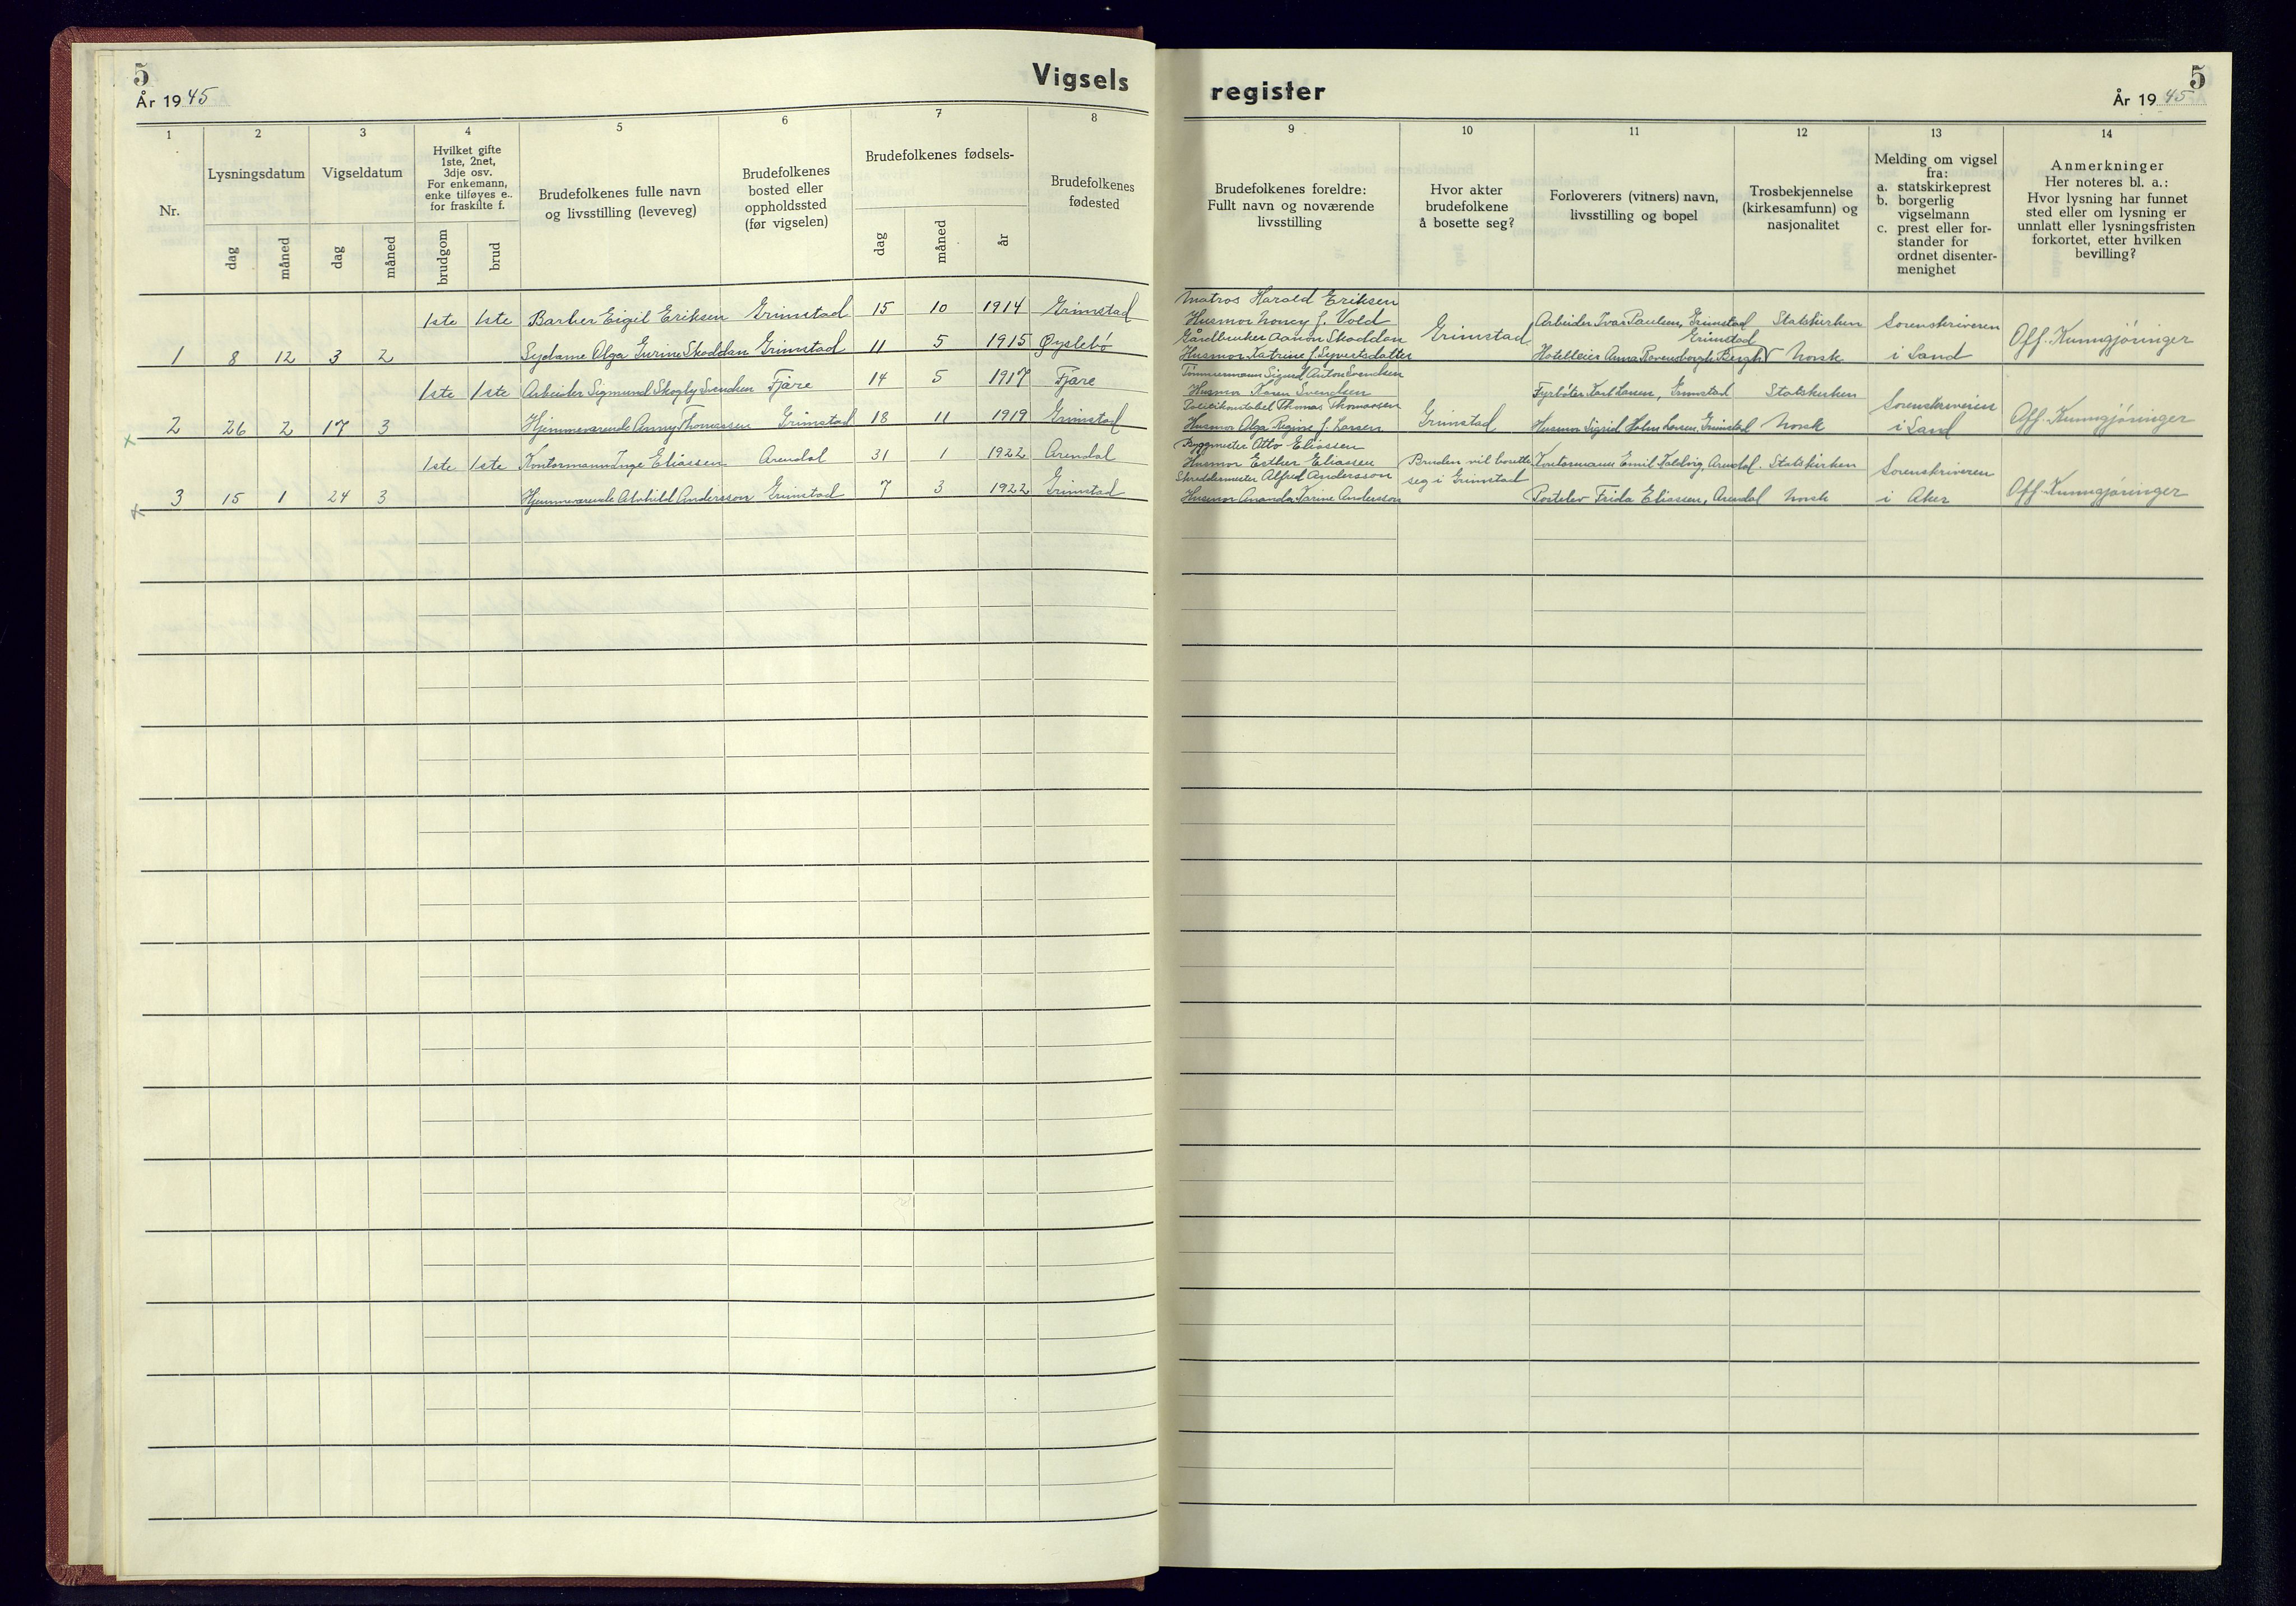 5
År 1945
Vigsels
register
5
År 1945
1
2
3
4
5
6
7
8
Nr.
Lysningsdatum
dag
måned
Vigseldatum
dag
måned
Hvilket gifte
1ste, 2net,
3dje osv.
For enkemann,
enke tilføyes e..
for fraskilte f.
brudgom
brud
Brudefolkenes fulle navn
og livsstilling (leveveg)
Brudefolkenes
bosted eller
oppholdssted
(før vigselen)
Brudefolkenes fødsels-
dag
måned
år
Brudefolkenes
fødested
1ste 1ste Barber Eigil Eriksen Grimstad 15 10 1914 Grimstad
1 8 12 3 2 Sydame Olga Gurine Skoddan Grimstad 11 5 1915 Øyslebö
1ste 1ste Arbeider Sigmund Skogly Svendsen Fjäre 14 5 1917 Fjäre
x 2 26 2 17 3 Hjemmeværende Anny Thomassen Grimstad 18 11 1919 Grimstad
1ste 1ste Kontormann Inge Eliassen Arendal 31 1 1922 Arendal
x 3 15 1 24 3 Hjemmeværende Alvhild Andersson Grimstad 7 3 1922 Grimstad
9
10
11
12
13
14
Brudefolkenes foreldre:
Fullt navn og noværende
livsstilling
Hvor akter
brudefolkene
å bosette seg?
Forloverers (vitners) navn,
livsstilling og bopel
Trosbekjennelse
(kirkesamfunn) og
nasjonalitet
Melding om vigsel
fra:
a. statskirkeprest
b. borgerlig
vigselmann
c. prest eller for-
stander for
ordnet disenter-
menighet
Anmerkninger
Her noteres bl. a.:
Hvor lysning har funnet
sted eller om lysning er
unnlatt eller lysningsfristen
forkortet, etter hvilken
bevilling?
Matros Harald Eriksen
Husmor Nancy f. Vold
Gårdbruker Aanon Skoddan
Husmor Katrine f. Syvertsdatter
Grimstad
Arbeider Ivar Paulsen, Grimstad
Grimstad
Hotelleier Anna Ravensborgh Bergh
Statskirken
Norsk
Sorenskriveren
i Sand
Off. Kunngjøringer
Tömmermann Sigurd Anton Svendsen
Husmor Karen Svendsen
Politikonstabel Thomas Thomassen
Husmor Olga Regine f. Larsen
Grimstad
Fyrböter Karl Larsen, Grimstad
Husmor Sigrid Holm Larsen, Grimstad
Statskirken
Norsk
Sorenskriveren
i Sand
Off. Kunngjøringer
Byggmester Otto Eliassen
Husmor Esther Eliassen
Skreddermester Alfred Andersson
Husmor Ananda Karine Andersson
Bruden vil bosette
seg i Grimstad
Kontormann Emil Kaldvig, Arendal.
Postelev Frida Eliassen, Arendal
Statskirken
Norsk
Sorenskriveren
i Aker
Off. Kunngjøringer